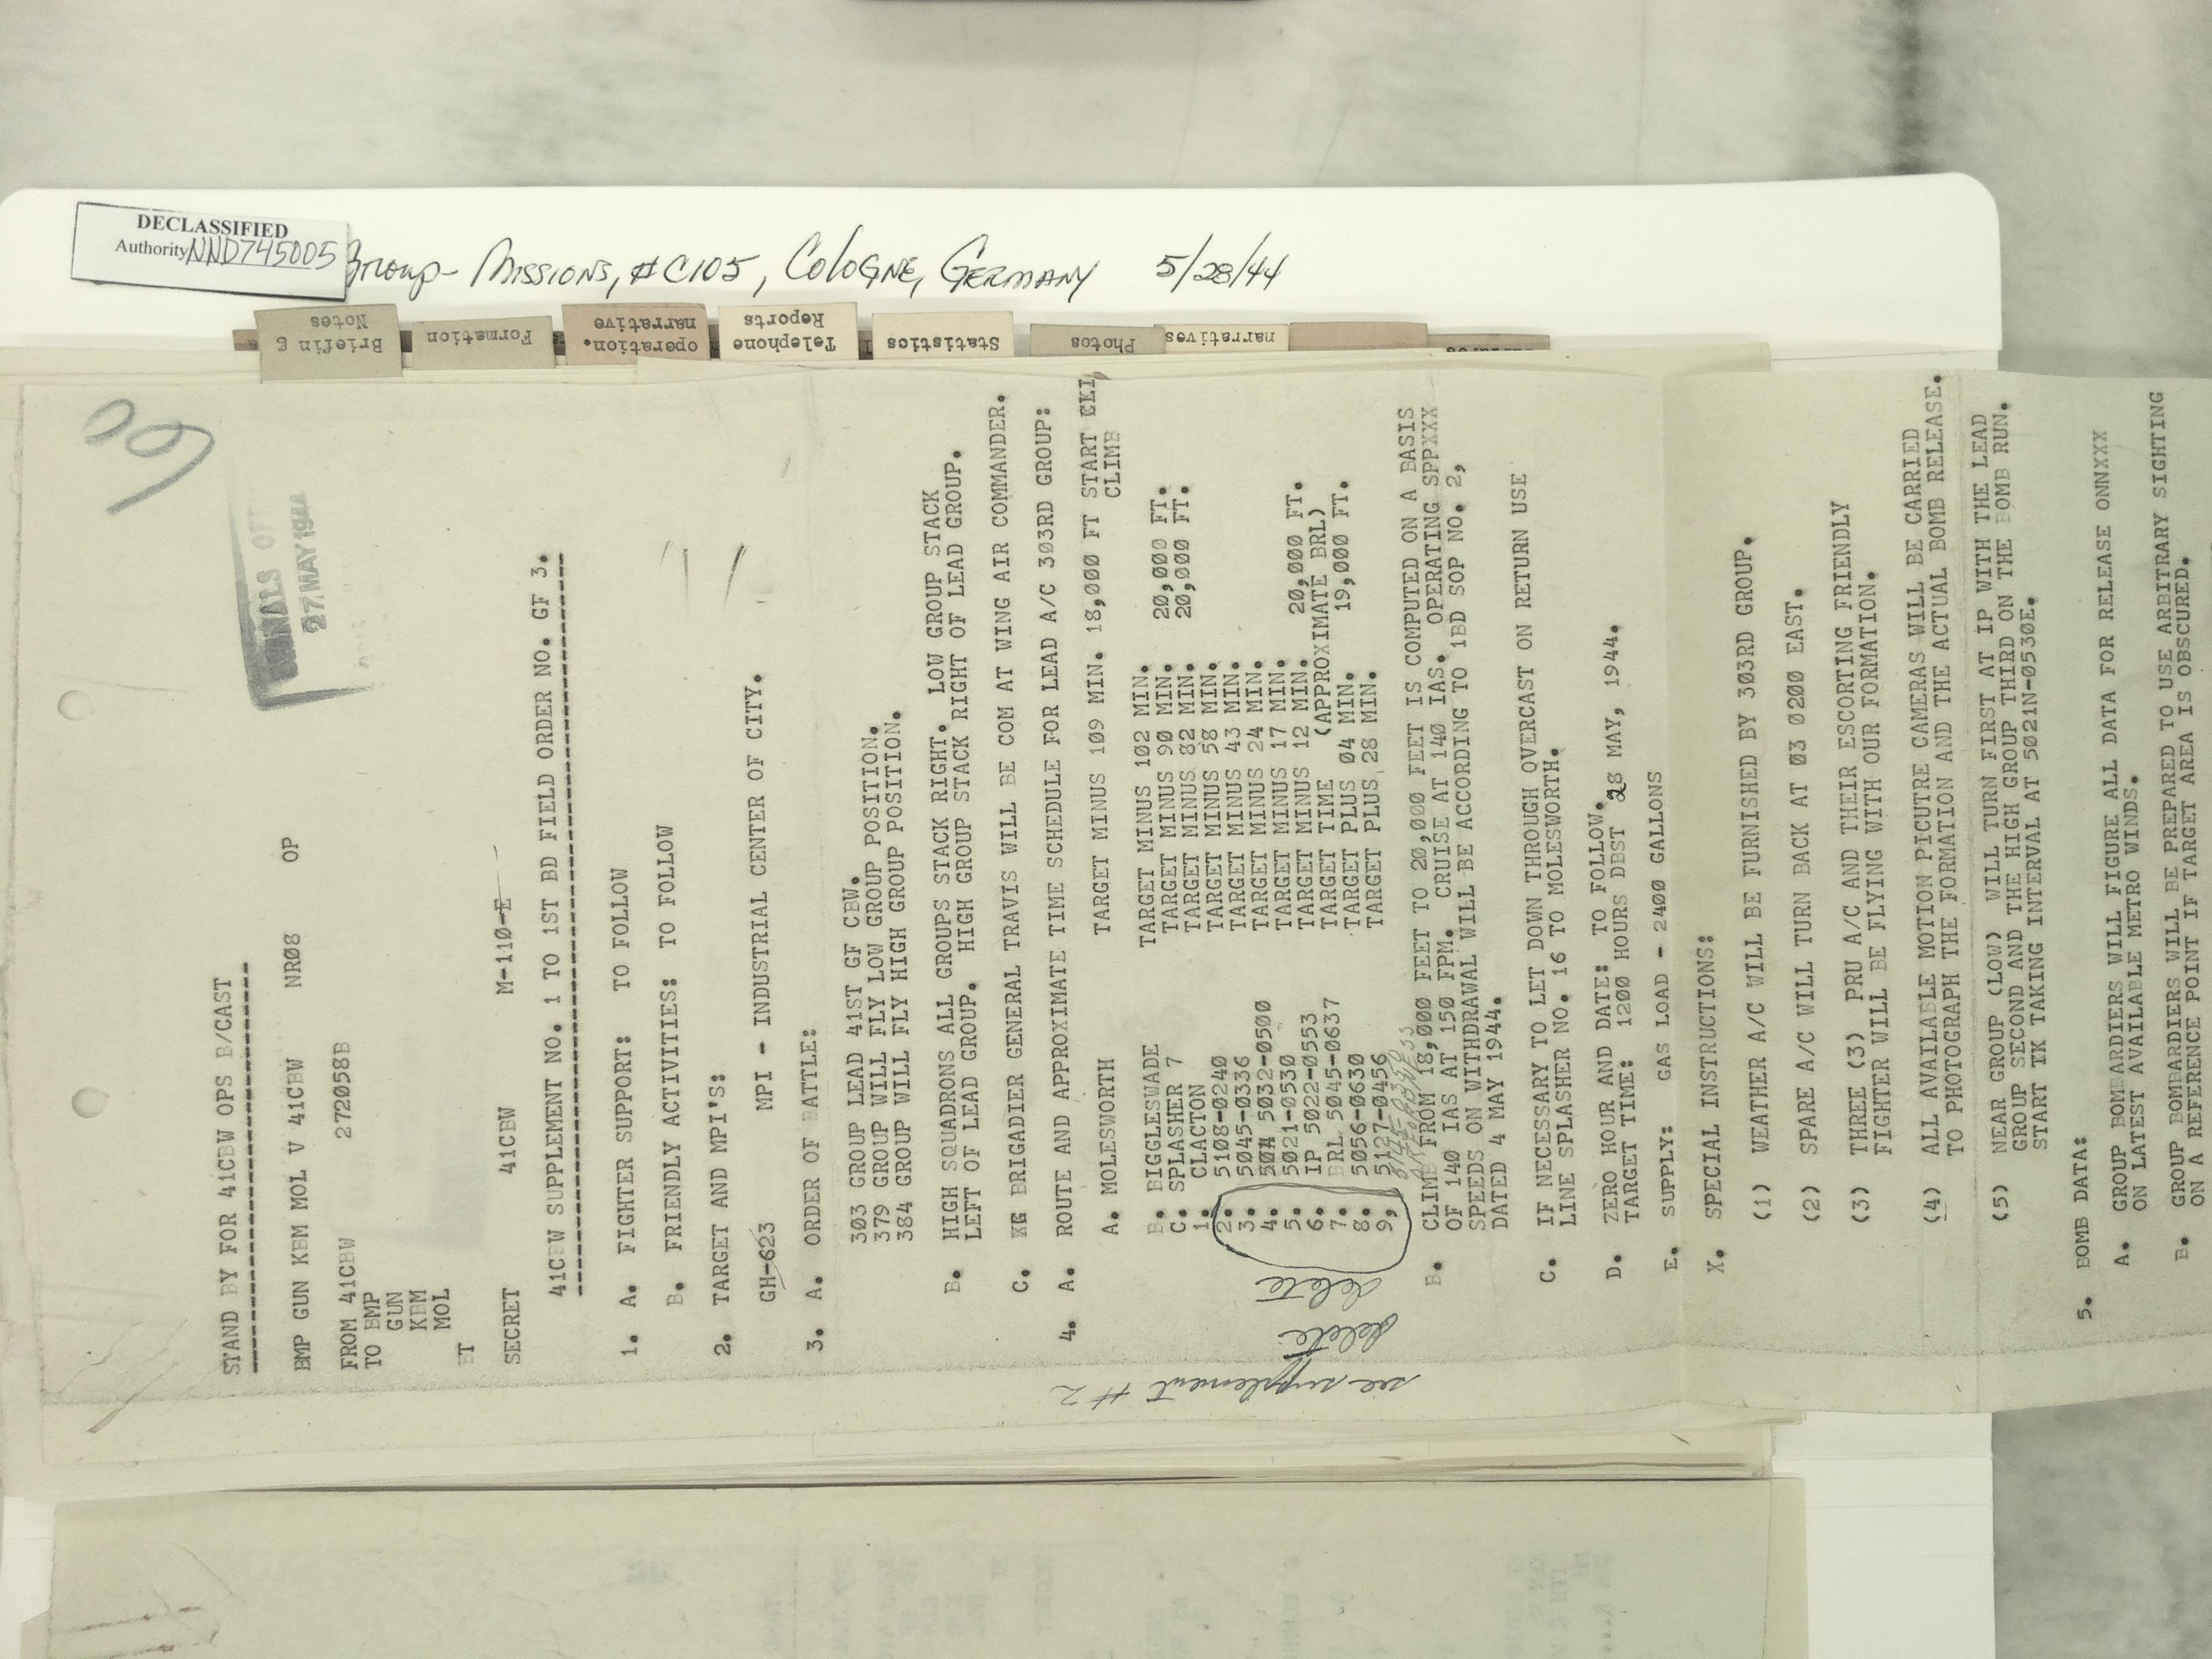 DECLASSIFIED
Authority NND745005
Group - Missions, #C105, Cologne, Germany 5/28/44
Briefing
Notes
Formation
operation.
narrative
Telephone
Reports
Statistics
Photos
narratives
27 MAY 1944
STAND BY FOR 41CBW OPS B/CAST
BMP GUN KBM MOL V 41CBW NR08 OP
FROM 41CBW 272058B
TO BMP
GUN
KBM
MOL
BT
SECRET 41CBW M-110-E
41CBW SUPPLEMENT NO. 1 TO 1ST BD FIELD ORDER NO. GF 3.
1. A. FIGHTER SUPPORT: TO FOLLOW
B. FRIENDLY ACTIVITIES: TO FOLLOW
2. TARGET AND MPI'S:
GH-623 MPI - INDUSTRIAL CENTER OF CITY.
3. A. ORDER OF BATTLE:
303 GROUP LEAD 41ST GF CBW.
379 GROUP WILL FLY LOW GROUP POSITION.
384 GROUP WILL FLY HIGH GROUP POSITION.
B. HIGH SQUADRONS ALL GROUPS STACK RIGHT. LOW GROUP STACK
LEFT OF LEAD GROUP. HIGH GROUP STACK RIGHT OF LEAD GROUP.
C. BRIGADIER GENERAL TRAVIS WILL BE COM AT WING AIR COMMANDER.
4. A. ROUTE AND APPROXIMATE TIME SCHEDULE FOR LEAD A/C 303RD GROUP:
A. MOLESWORTH TARGET MINUS 109 MIN. 18,000 FT START CLI
CLIMB
B. BIGGLESWADE TARGET MINUS 102 MIN.
C. SPLASHER 7 TARGET MINUS 90 MIN. 20,000 FT.
1. CLACTON TARGET MINUS 82 MIN. 20,000 FT.
2. 5108-0240 TARGET MINUS 58 MIN.
3. 5045-0336 TARGET MINUS 43 MIN.
4. 5032-0500 TARGET MINUS 24 MIN.
5. 5021-0530 TARGET MINUS 17 MIN.
6. IP 5022-0553 TARGET MINUS 12 MIN. 20,000 FT.
7. BRL 5045-0637 TARGET TIME (APPROXIMATE BRL)
8. 5056-0630 TARGET PLUS 04 MIN. 19,000 FT.
9, 5127-0456 TARGET PLUS 28 MIN.
delete
delete
see supplement #2
B. CLIMB FROM 18,000 FEET TO 20,000 FEET IS COMPUTED ON A BASIS
OF 140 IAS AT 150 FPM. CRUISE AT 140 IAS. OPERATING SPPXXX
SPEEDS ON WITHDRAWAL WILL BE ACCORDING TO 1BD SOP NO. 2,
DATED 4 MAY 1944.
C. IF NECESSARY TO LET DOWN THROUGH OVERCAST ON RETURN USE
LINE SPLASHER NO. 16 TO MOLESWORTH.
D. ZERO HOUR AND DATE: TO FOLLOW.
TARGET TIME: 1200 HOURS DBST 28 MAY, 1944.
E. SUPPLY: GAS LOAD - 2400 GALLONS
X. SPECIAL INSTRUCTIONS:
(1) WEATHER A/C WILL BE FURNISHED BY 303RD GROUP.
(2) SPARE A/C WILL TURN BACK AT 03 0200 EAST.
(3) THREE (3) PRU A/C AND THEIR ESCORTING FRIENDLY
FIGHTER WILL BE FLYING WITH OUR FORMATION.
(4) ALL AVAILABLE MOTION PICUTRE CAMERAS WILL BE CARRIED
TO PHOTOGRAPH THE FORMATION AND THE ACTUAL BOMB RELEASE.
(5) NEAR GROUP (LOW) WILL TURN FIRST AT IP WITH THE LEAD
GROUP SECOND AND THE HIGH GROUP THIRD ON THE BOMB RUN.
START TK TAKING INTERVAL AT 5021N-0530E.
5. BOMB DATA:
A. GROUP BOMBARDIERS WILL FIGURE ALL DATA FOR RELEASE ONNXXX
ON LATEST AVAILABLE METRO WINDS.
B. GROUP BOMBARDIERS WILL BE PREPARED TO USE ARBITRARY SIGHTING
ON A REFERENCE POINT IF TARGET AREA IS OBSCURED.